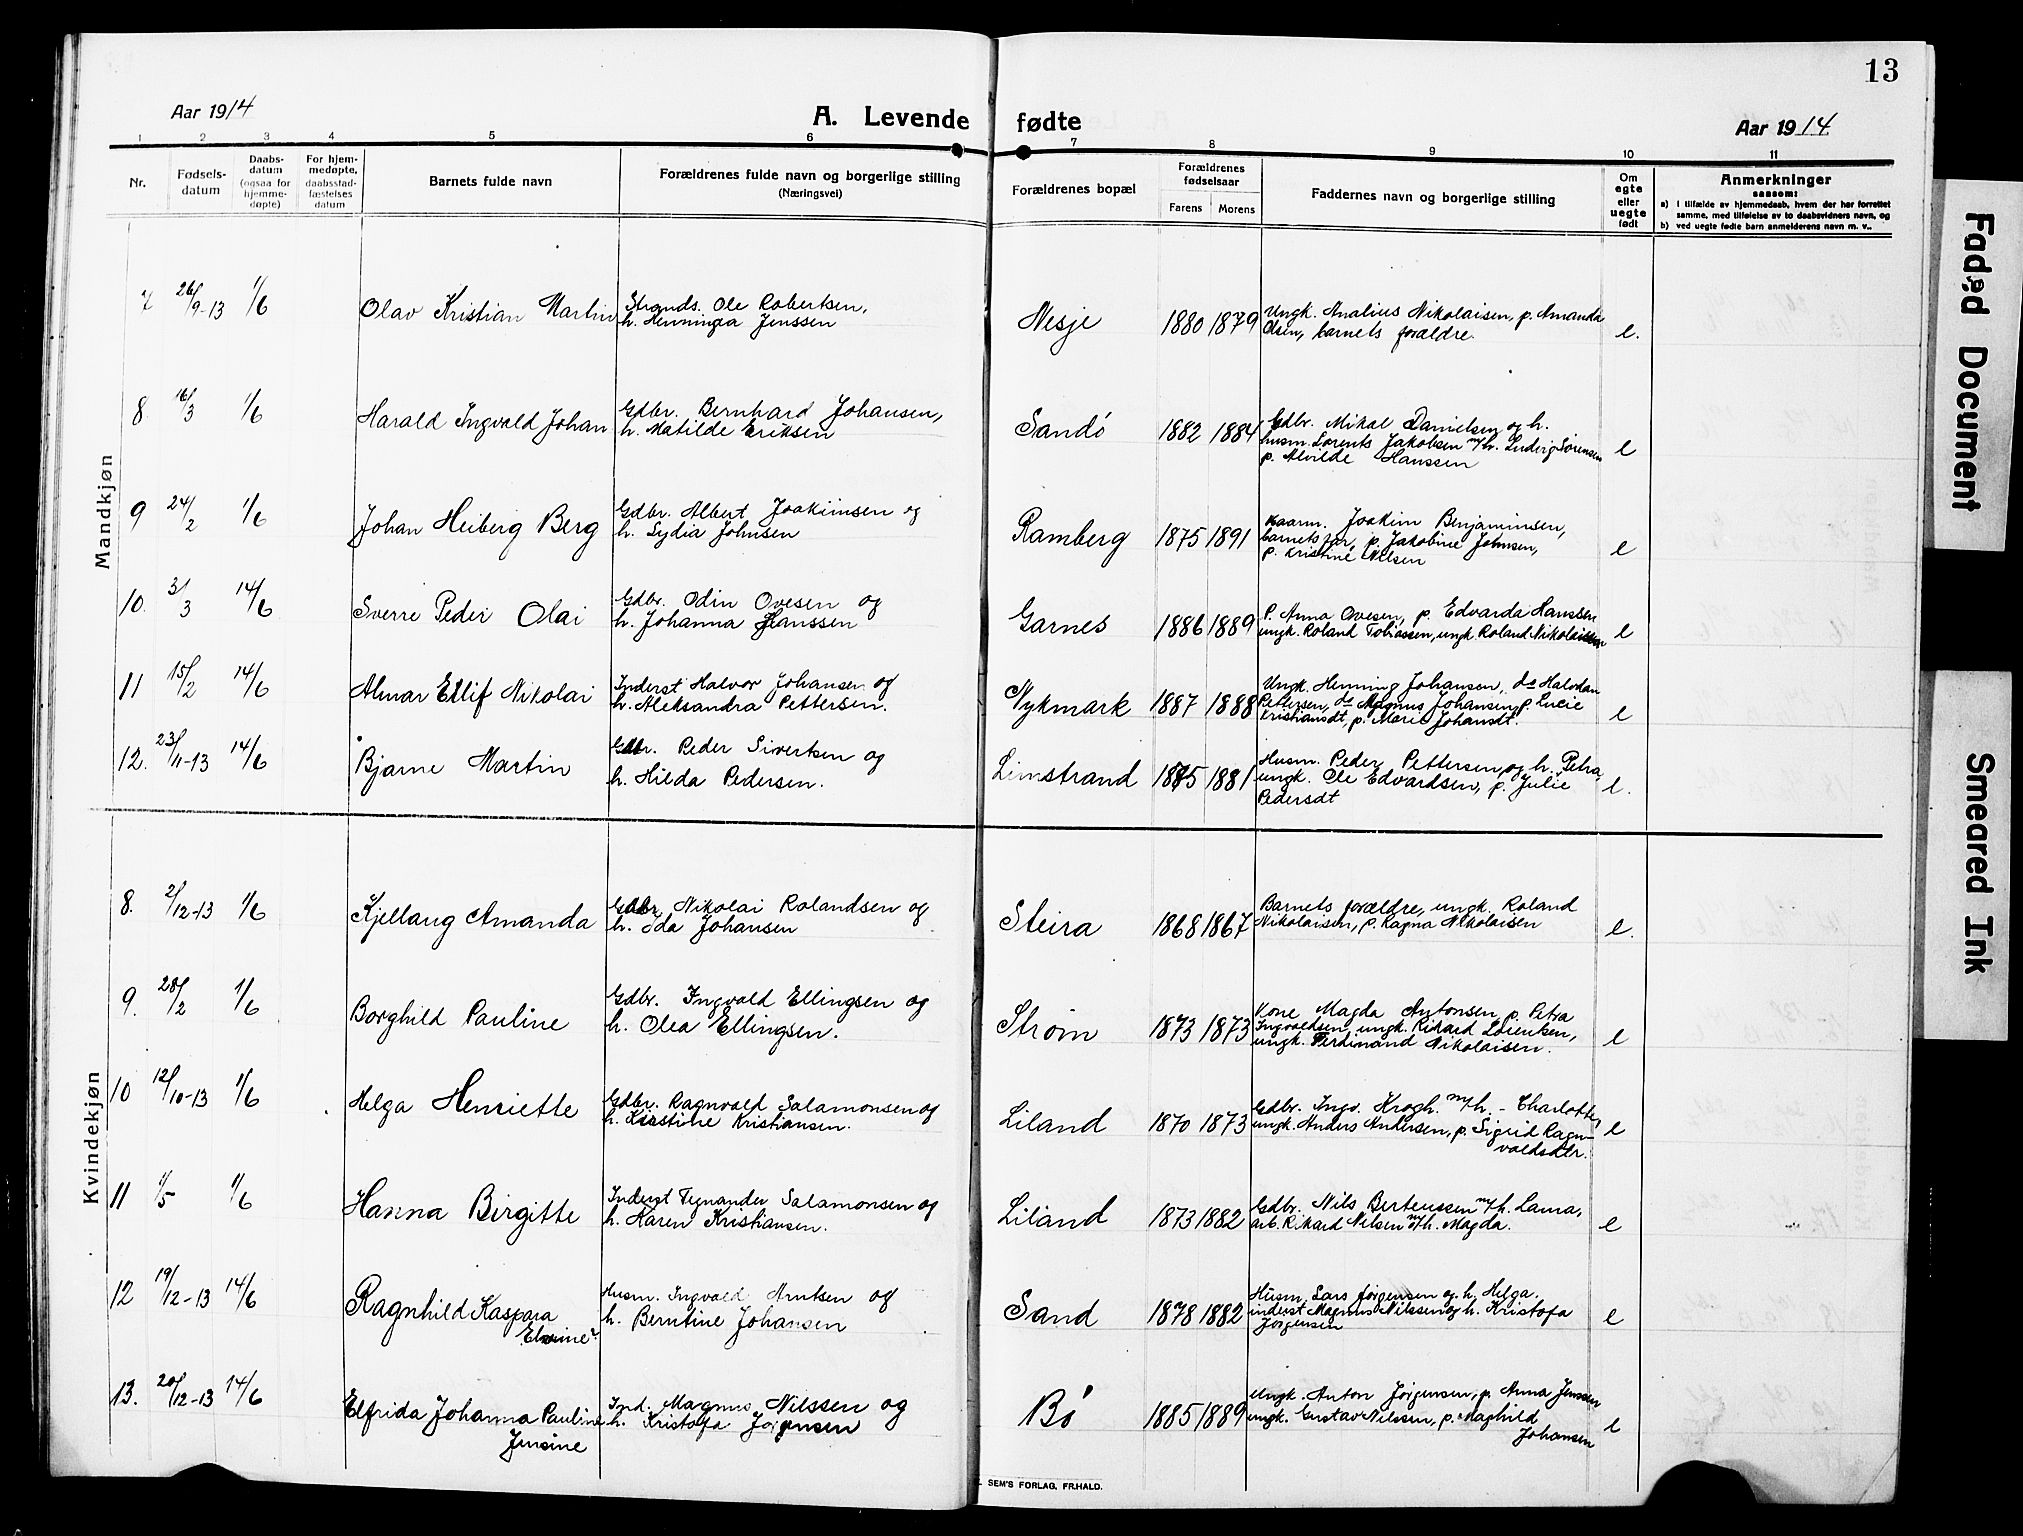 13
Aar 1914
A. Levende fødte
Aar 1914
1 2 3 4 5 6 7 8 9 10 11
Nr.
Fødsels-
datum
Daabs-
datum
(ogsaa for
hjemme-
døpte)
For hjem-
medøpte,
daabsstad-
fæstelses
datum
Barnets fulde navn
Forældrenes fulde navn og borgerlige stilling
(Næringsvei)
Forældrenes bopæl
Forældrenes
fødselsaar
Farens Morens
Faddernes navn og borgerlige stilling
Om
egte
eller
uegte
født
Anmerkninger
saasom:
a) i tilfælde av hjemmedaab, hvem der har forrettet
samme, med tilføielse av to daabsvidners navn, og
b) ved uegte fødte barn anmelderens navn m. v..
Mandkjøn
7 26/9-13 1/6 Olav Kristian Martin
Strands. Ole Robertsen,
h. Henningea Jenssen
Nesje 1880 1879
Ungk. Analius Nikolaisen, p. Amanda
Olsen, barnets forældre.
e.
8. 16/3 1/6 Harald Ingvald Johan
Gdbr. Bernhard Johansen,
h. Matilde Eriksen
Sandö 1882 1884
Gdbr. Mikal Danielsen og h.
husm. Lorents Jakobsen m/h. Ludvig Sörensen
p. Alvilde Hanssen
e
9 24/2 1/6 Johan Heiberg Berg
Gdbr. Albert Joakimsen og
h. Lydia Johnsen
Ramberg 1875 1891
Kaarm. Joakim Benjaminsen,
barnets far, p. Jakobine Johnsen,
p. Kristine Nilsen
e
10. 31/3 14/6 Sverre Peder Olai
Gdbr. Odin Ovesen og
h. Johanna Hanssen
Garnes 1886 1889
P. Anna Ovesen, p. Edvarda Hanssen
ungk. Roland Tobiassen, ungk. Roland Nikolaissen
e
11 15/2 14/6 Almar Ellif Nikolai
Inderst Halvor Johansen og
h. Aleksandra Pettersen.
Nykmark 1887 1888
Ungk. Henning Johansen, do Halvdan
Pettersen, do Magnus Johansen, p. Lucie
Kristiansdt, p. Marie Johansdt.
e
12. 23/11-13 14/6 Bjarne Martin
Gdbr. Peder Sivertsen og
h. Hilda Pedersen.
Limstrand 1875 1881
Husm. Peder Pettersen og h. Petra,
ungk. Ole Edvardsen, p. Julie
Pedersdt
e.
Kvindekjøn
8. 2/12-13 1/6 Kjellaug Amanda
Gdbr. Nikolai Rolandsen og
h. Ida Johansen
Steira 1868 1867
Barnets forældre, ungk. Roland
Nikolaisen, p. Ragna Nikolaisen
e.
9. 28/2 1/6 Borghild Pauline
Gdbr. Ingvald Ellingsen og
h. Olea Ellingsen.
Ström 1873 1873
Kone Magda Antonsen p. Petra
Ingvaldsen, ungk. Rikard Lorentsen,
ungk. Ferdinand Nikolaisen.
e
10 12/10-13 1/6 Helga Henriette
Gdbr. Ragnvald Salamonsen og
h. Kristine Kristiansen.
Liland 1870 1873
Gdbr. Ingv. Krogh. m/h. - Charlotte,
ungk. Anders Andersen, p. Sigrid Ragn-
valdsdtr.
e
11 1/5 1/6 Hanna Birgitte
Inderst Tegnander Salamonsen og
h. Karen Kristiansen.
Liland 1873 1882
Gdbr. Nils Berteussen m/h. Laura,
arb. Rikard Nilsen m/h. Magda.
e
12 19/12-13 14/6 Ragnhild Kaspara
Elvine
Husm. Ingvald Arntsen og
h. Berntine Johansen
Sand 1878 1882
Husm. Lars Jørgensen og h. Helga.
inderst Magnus Nilssen og h. Kristofa
Jørgensen
e
13. 20/12-13 14/6 Elfrida Johanna Pauline
Jensine
Ind. Magnus Nilssen og
h. Kristofa Jörgensen
Bö 1885 1889
Ungk. Anton Jörgensen, p. Anna Jenssen
ungk. Gustav Nilssen, p. Maghild
Johansen
e
SEM'S FORLAG, FR.HALD.
Faded Document
Smeared Ink